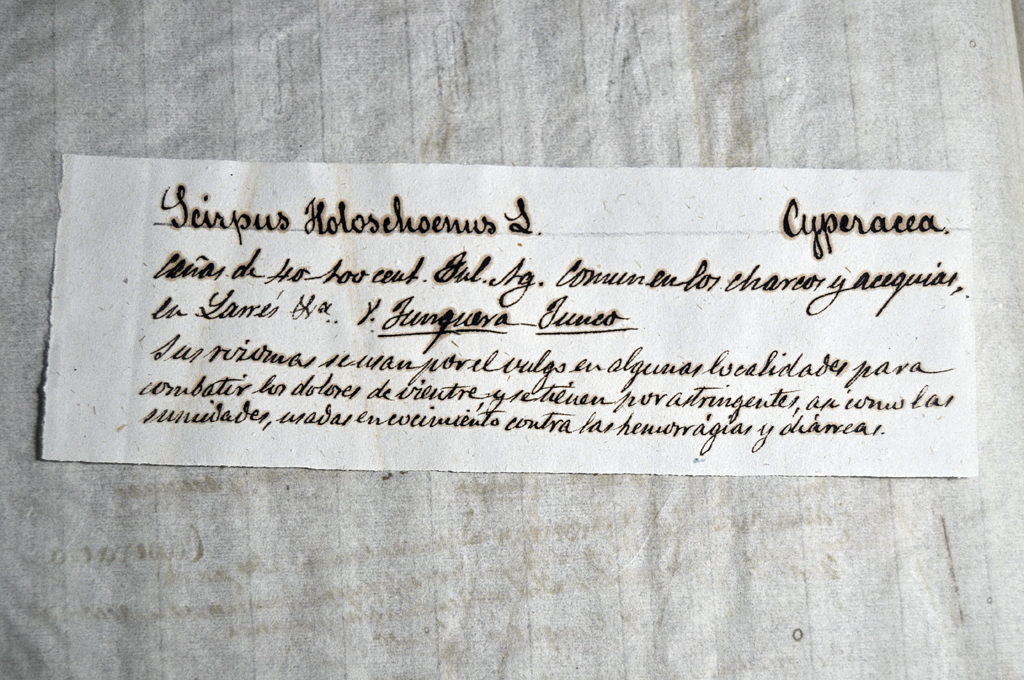 Scirpus Holoschoenus L. Cyperacea.
Cañas de 40-100 cent. Jul. Ag. Comun en los charcos y acequias,
en Larrés &a. V. Junquera Junco
Sus rizomas se usan por el vulgo en algunas localidades para
combatir los dolores de vientre y se tienen por astringentes, asi como las
sumidades, usadas en cocimiento contra las hemorrágias y diarreas.